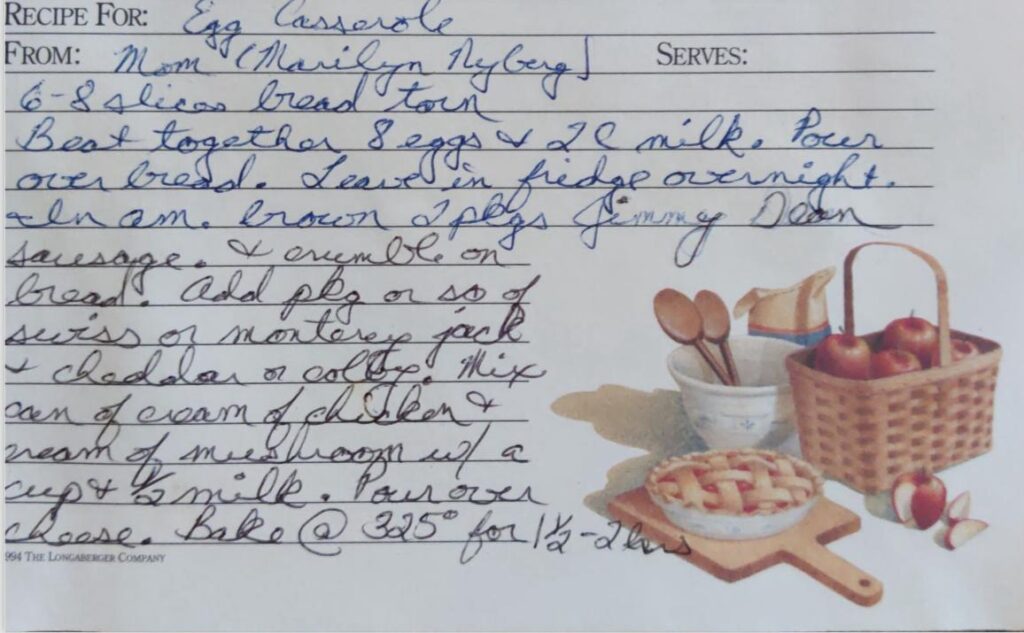 RECIPE FOR: Egg Casserole
FROM: Mom (Marilyn Nyberg) SERVES:
6-8 slices bread torn
Beat together 8 eggs & 2 C milk. Pour
over bread. Leave in fridge overnight.
In am. brown 2 pkgs Jimmy Dean
sausage. & crumble on
bread. Add pkg or so of
swiss or monterey jack
& cheddar or colby. Mix
can of cream of chicken &
cream of mushroom w/ a
cup & 1/2 milk. Pour over
cheese. Bake @ 325° for 1 1/2 - 2 hrs
994 THE LONGABERGER COMPANY